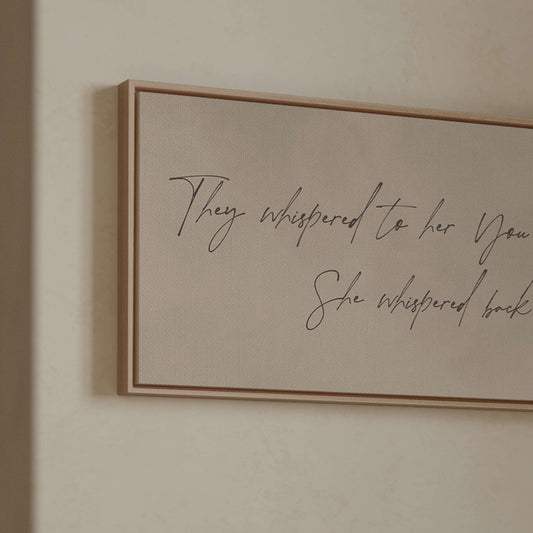 They whispered to her You
She whispered back